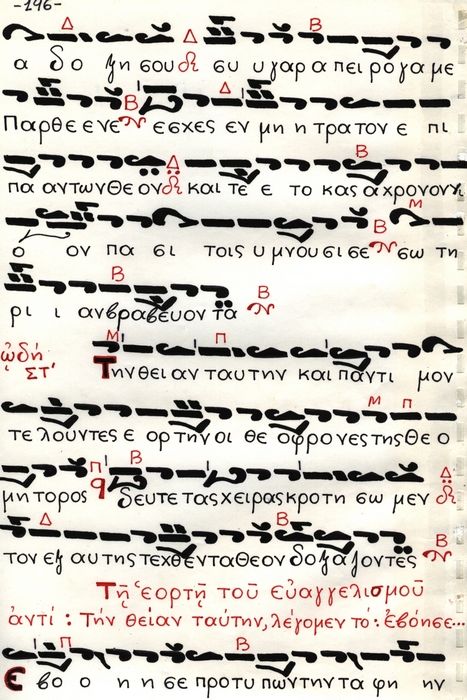 -196-
α δο ξη σου συ υ γαρ α πει ρο γα με
Παρθε ε νε εσχες εν μη η τρα τον ε πι
πα αντων θε ον και τε ε το κας α χρονον υι
ο ον πα σι τοις υ μνου σι σε σω τη
ρι ι αν βρα βευ ον τα
ᾠδή Την θει αν ταυ την και παν τι μον
ΣΤ'
τε λουν τες ε ορ την οι θε ο φρο νες της Θε ο
μη το ρος δευ τε τας χει ρας κρο τη σω μεν
τον εξ αυ της τεχ θεν τα θε ον δο ξα ζον τες
Τῇ ἑορτῇ τοῦ εὐαγγελισμοῦ
ἀντί: Τήν θείαν ταύτην, λέγομεν τό: Ἐβόησε...
ε βο ο η η σε προ τυ πων την τα φη ην